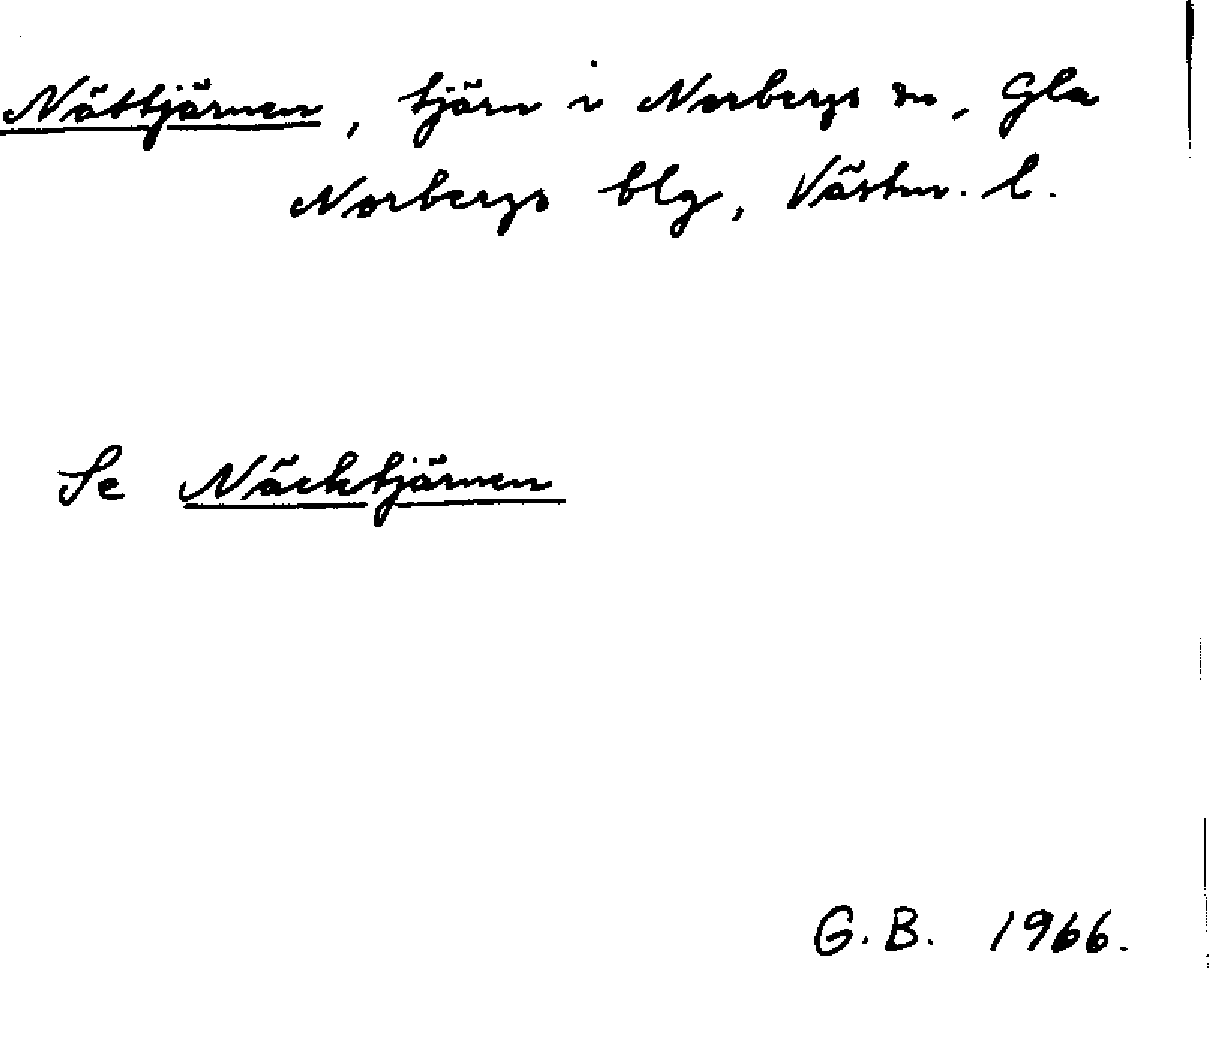 Nättjärnen, tjärn i Norbergs sn, Gla
Norbergs blg, Västm. l.
Se Näcktjärnen
G.B. 1966.